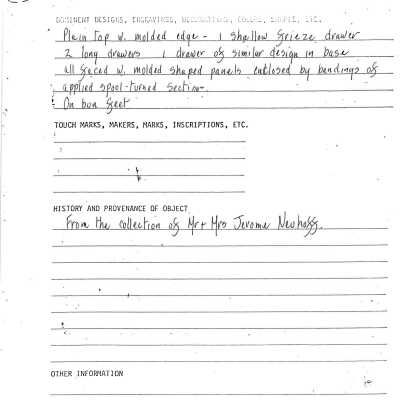 DOMINENT DESIGNS, ENGRAVINGS, DECORATIONS, COLORS, SHAPES, ETC.
Plain top w. molded edge - 1 shallow frieze drawer
2 long drawers 1 drawer of similar design in base
all faced w. molded shaped panels enclosed by bandings of
applied spool-turned section
On bun feet
TOUCH MARKS, MAKERS, MARKS, INSCRIPTIONS, ETC.
HISTORY AND PROVENANCE OF OBJECT
From the collection of Mr + Mrs Jerome Neuhoff.
OTHER INFORMATION